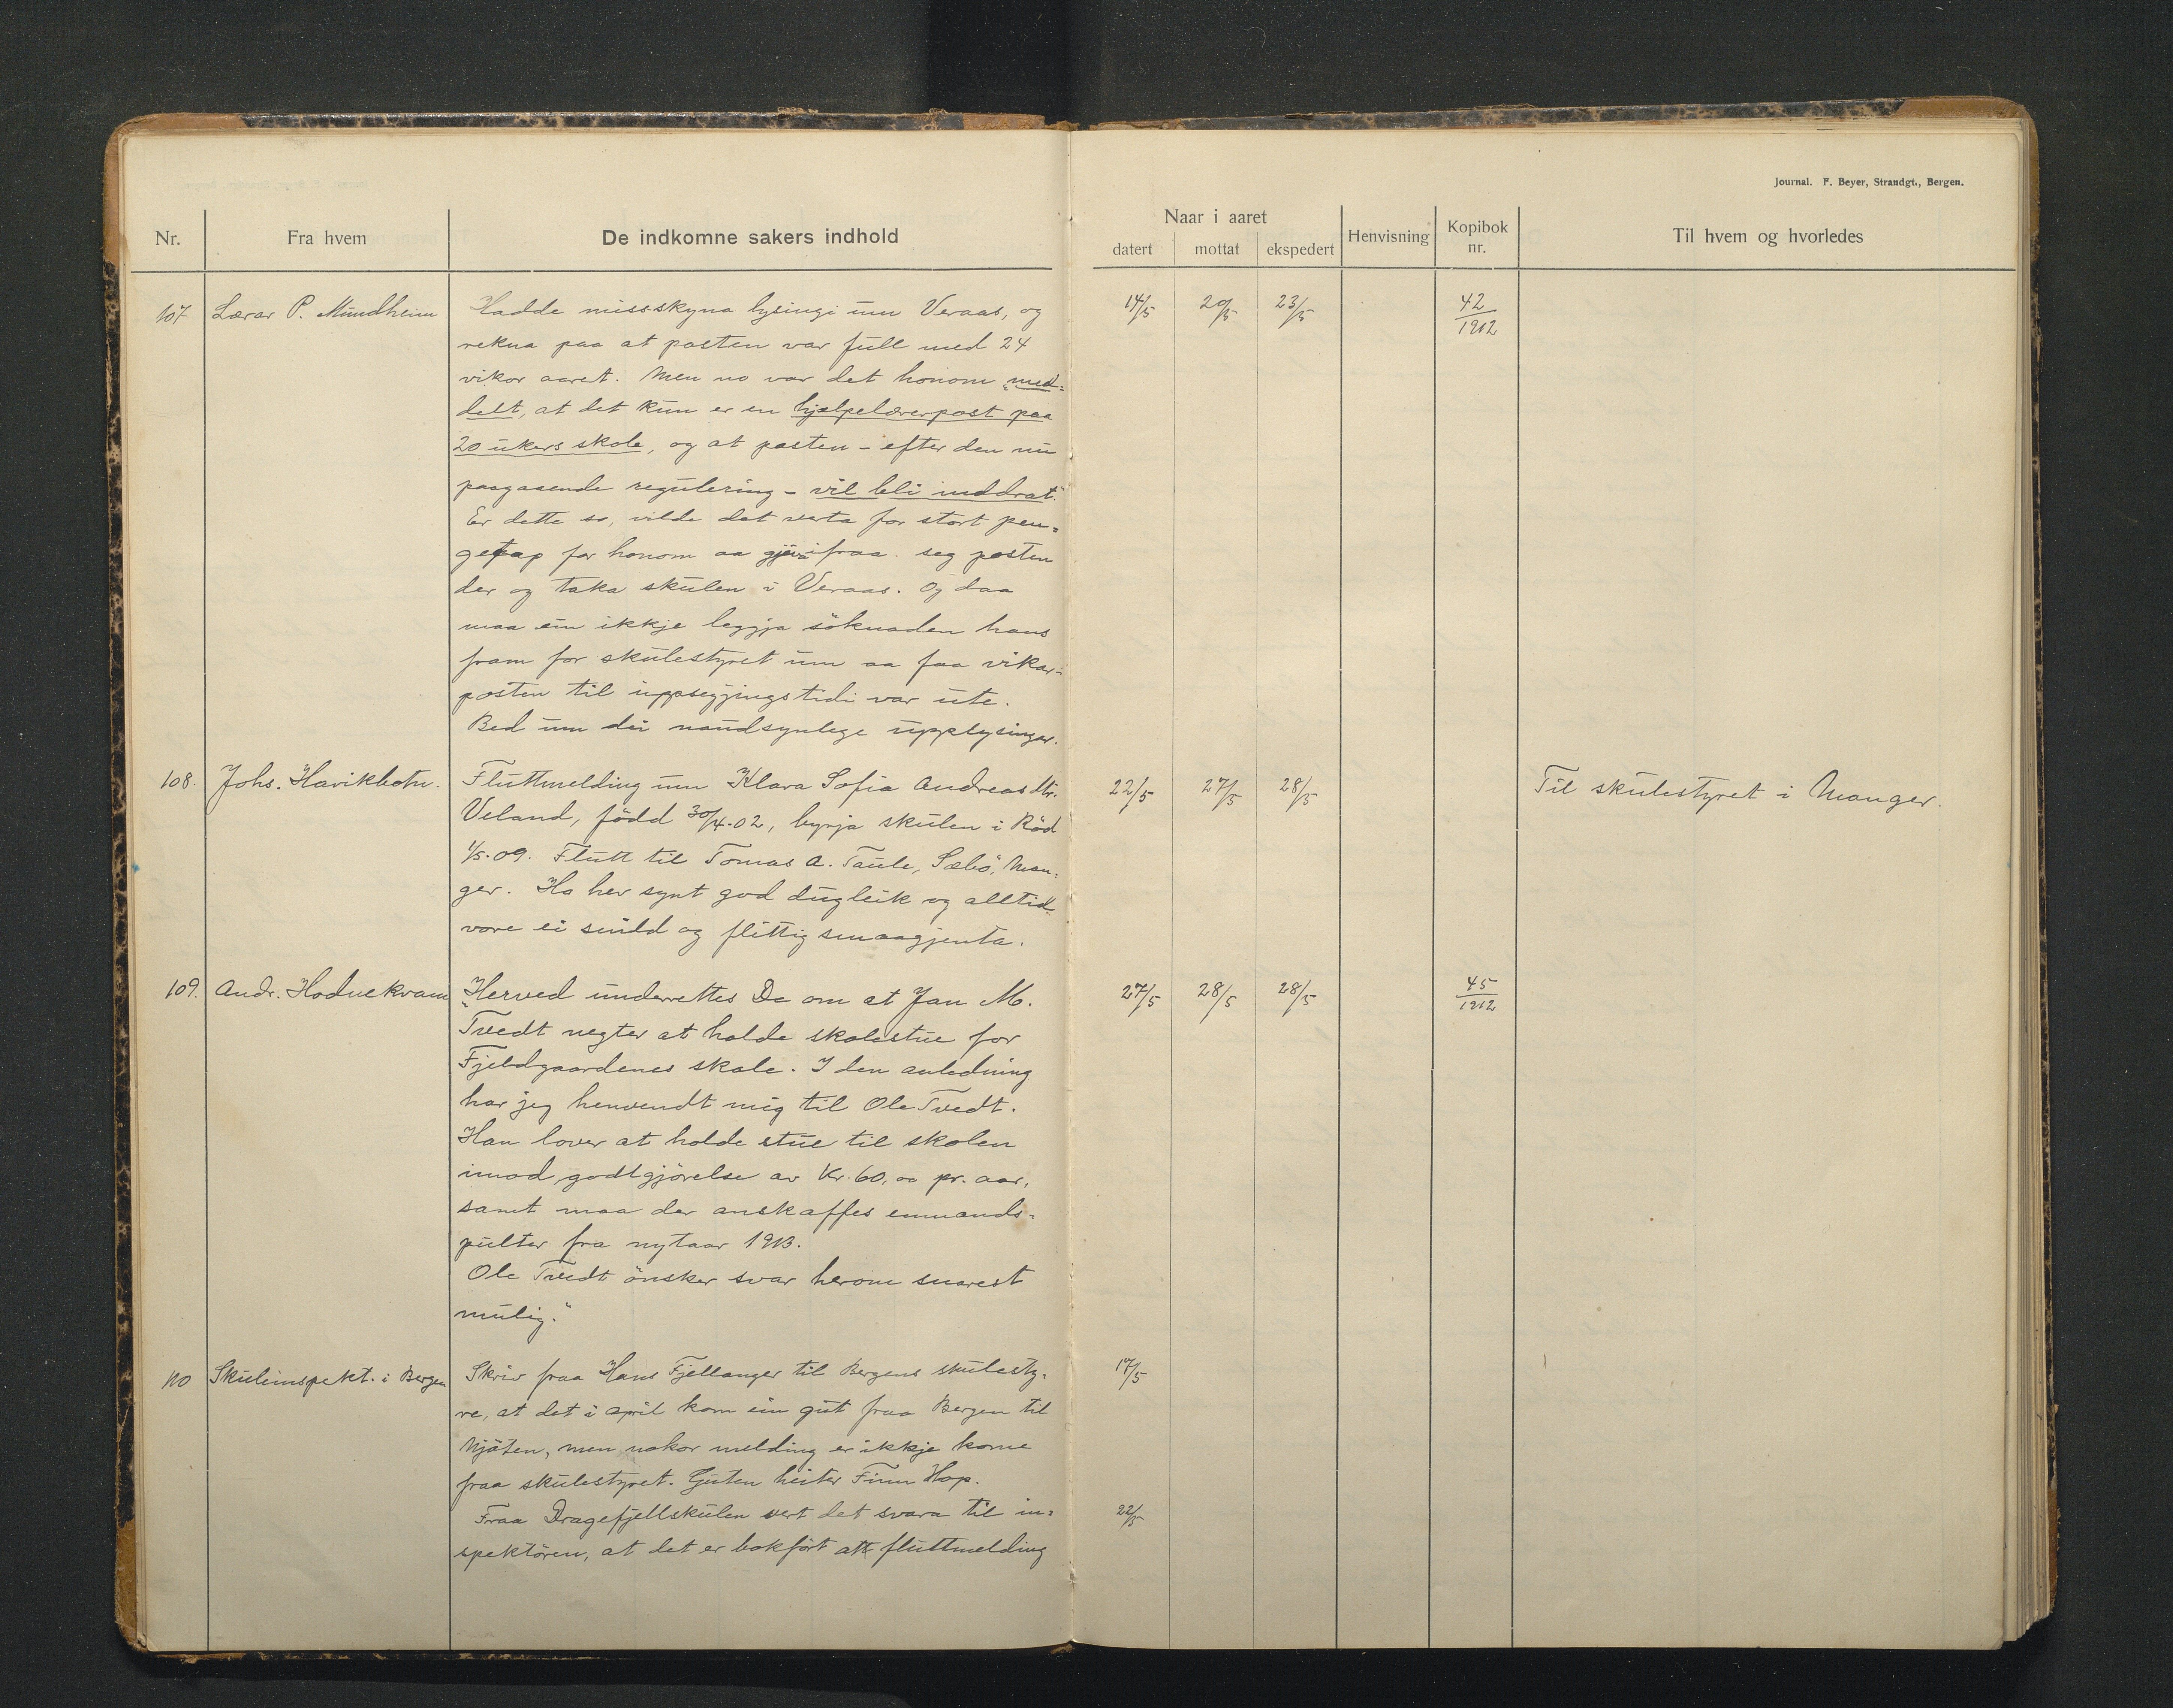 Journal. F. Beyer, Strandgt., Bergen.
Nr. Fra hvem De indkomne sakers indhold Naar i aaret datert mottat ekspedert Henvisning Kopibok nr. Til hvem og hvorledes
107 Lærar P. Mundheim Hadde misskyna lysingi um Veraas, og 14/5 20/5 23/5 42/1912
rekna paa at posten var full med 24
vikor aaret. Men no var det honom „med=
delt, at det kun er en hjælpelærerpost paa
20 ukers skole, og at posten - efter den nu
paagaaende regulering - vil bli inddrat."
Er dette so, vilde det verta for stort pen=
getap for honom aa gjeva ifraa seg posten
der og taka skulen i Veraas. Og daa
maa ein ikkje leggja söknaden hans
fram for skulestyret um aa faa vikar=
posten til uppsegjingstidi var ute.
Bed um dei naudsynlege upplysingar.
108. Johs. Havikbotn. Fluttmelding um Klara Sofia Andreasdtr. 22/5 27/5 28/5 Til skulestyret i Manger.
Veland, född 30/4.02, byrja skulen i Röd
1/5.09. Flutt til Tomas A. Taule, Sæbö, Man=
ger. Ho hev synt god dugleik og alltid
vore ei snild og flittig smaagjenta.
109. Andr. Hodnekvam „Herved underrettes De om at Jan M. 27/5 28/5 28/5 45/1912
Tvedt negter at holde skolestue for
Fjeldgaardenes skole. I den anledning
har jeg henvendt mig til Ole Tvedt.
Han lover at holde stue til skolen
imod godtgjörelse av Kr. 60,00 pr. aar,
samt maa der anskaffes enmands=
pulter fra nytaar 1913.
Ole Tvedt önsker svar herom snarest
mulig."
110 Skuleinspekt. i Bergen Skriv fraa Hans Fjellanger til Bergens skulesty= 17/5
re, at det i april kom ein gut fraa Bergen til
Mjöten, men nokor melding er ikkje kome
fraa skulestyret. Guten heiter Finn Hop.
Fraa Dragefjellskulen vert det svara til in= 22/5
spektören, at det er bokfört att fluttmelding